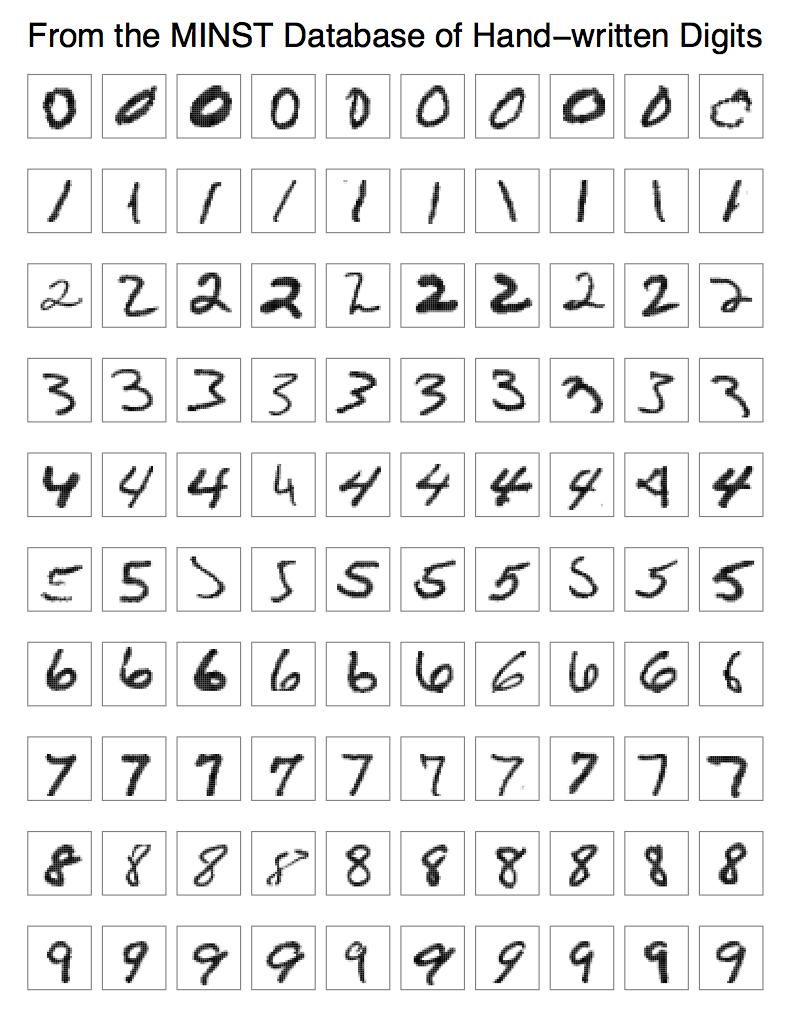 From the MINST Database of Hand–written Digits
0 0 0 0 0 0 0 0 0 0
1 1 1 1 1 1 1 1 1 1
2 2 2 2 2 2 2 2 2 2
3 3 3 3 3 3 3 3 3 3
4 4 4 4 4 4 4 4 4 4
5 5 5 5 5 5 5 5 5 5
6 6 6 6 6 6 6 6 6 6
7 7 7 7 7 7 7 7 7 7
8 8 8 8 8 8 8 8 8 8
9 9 9 9 9 9 9 9 9 9